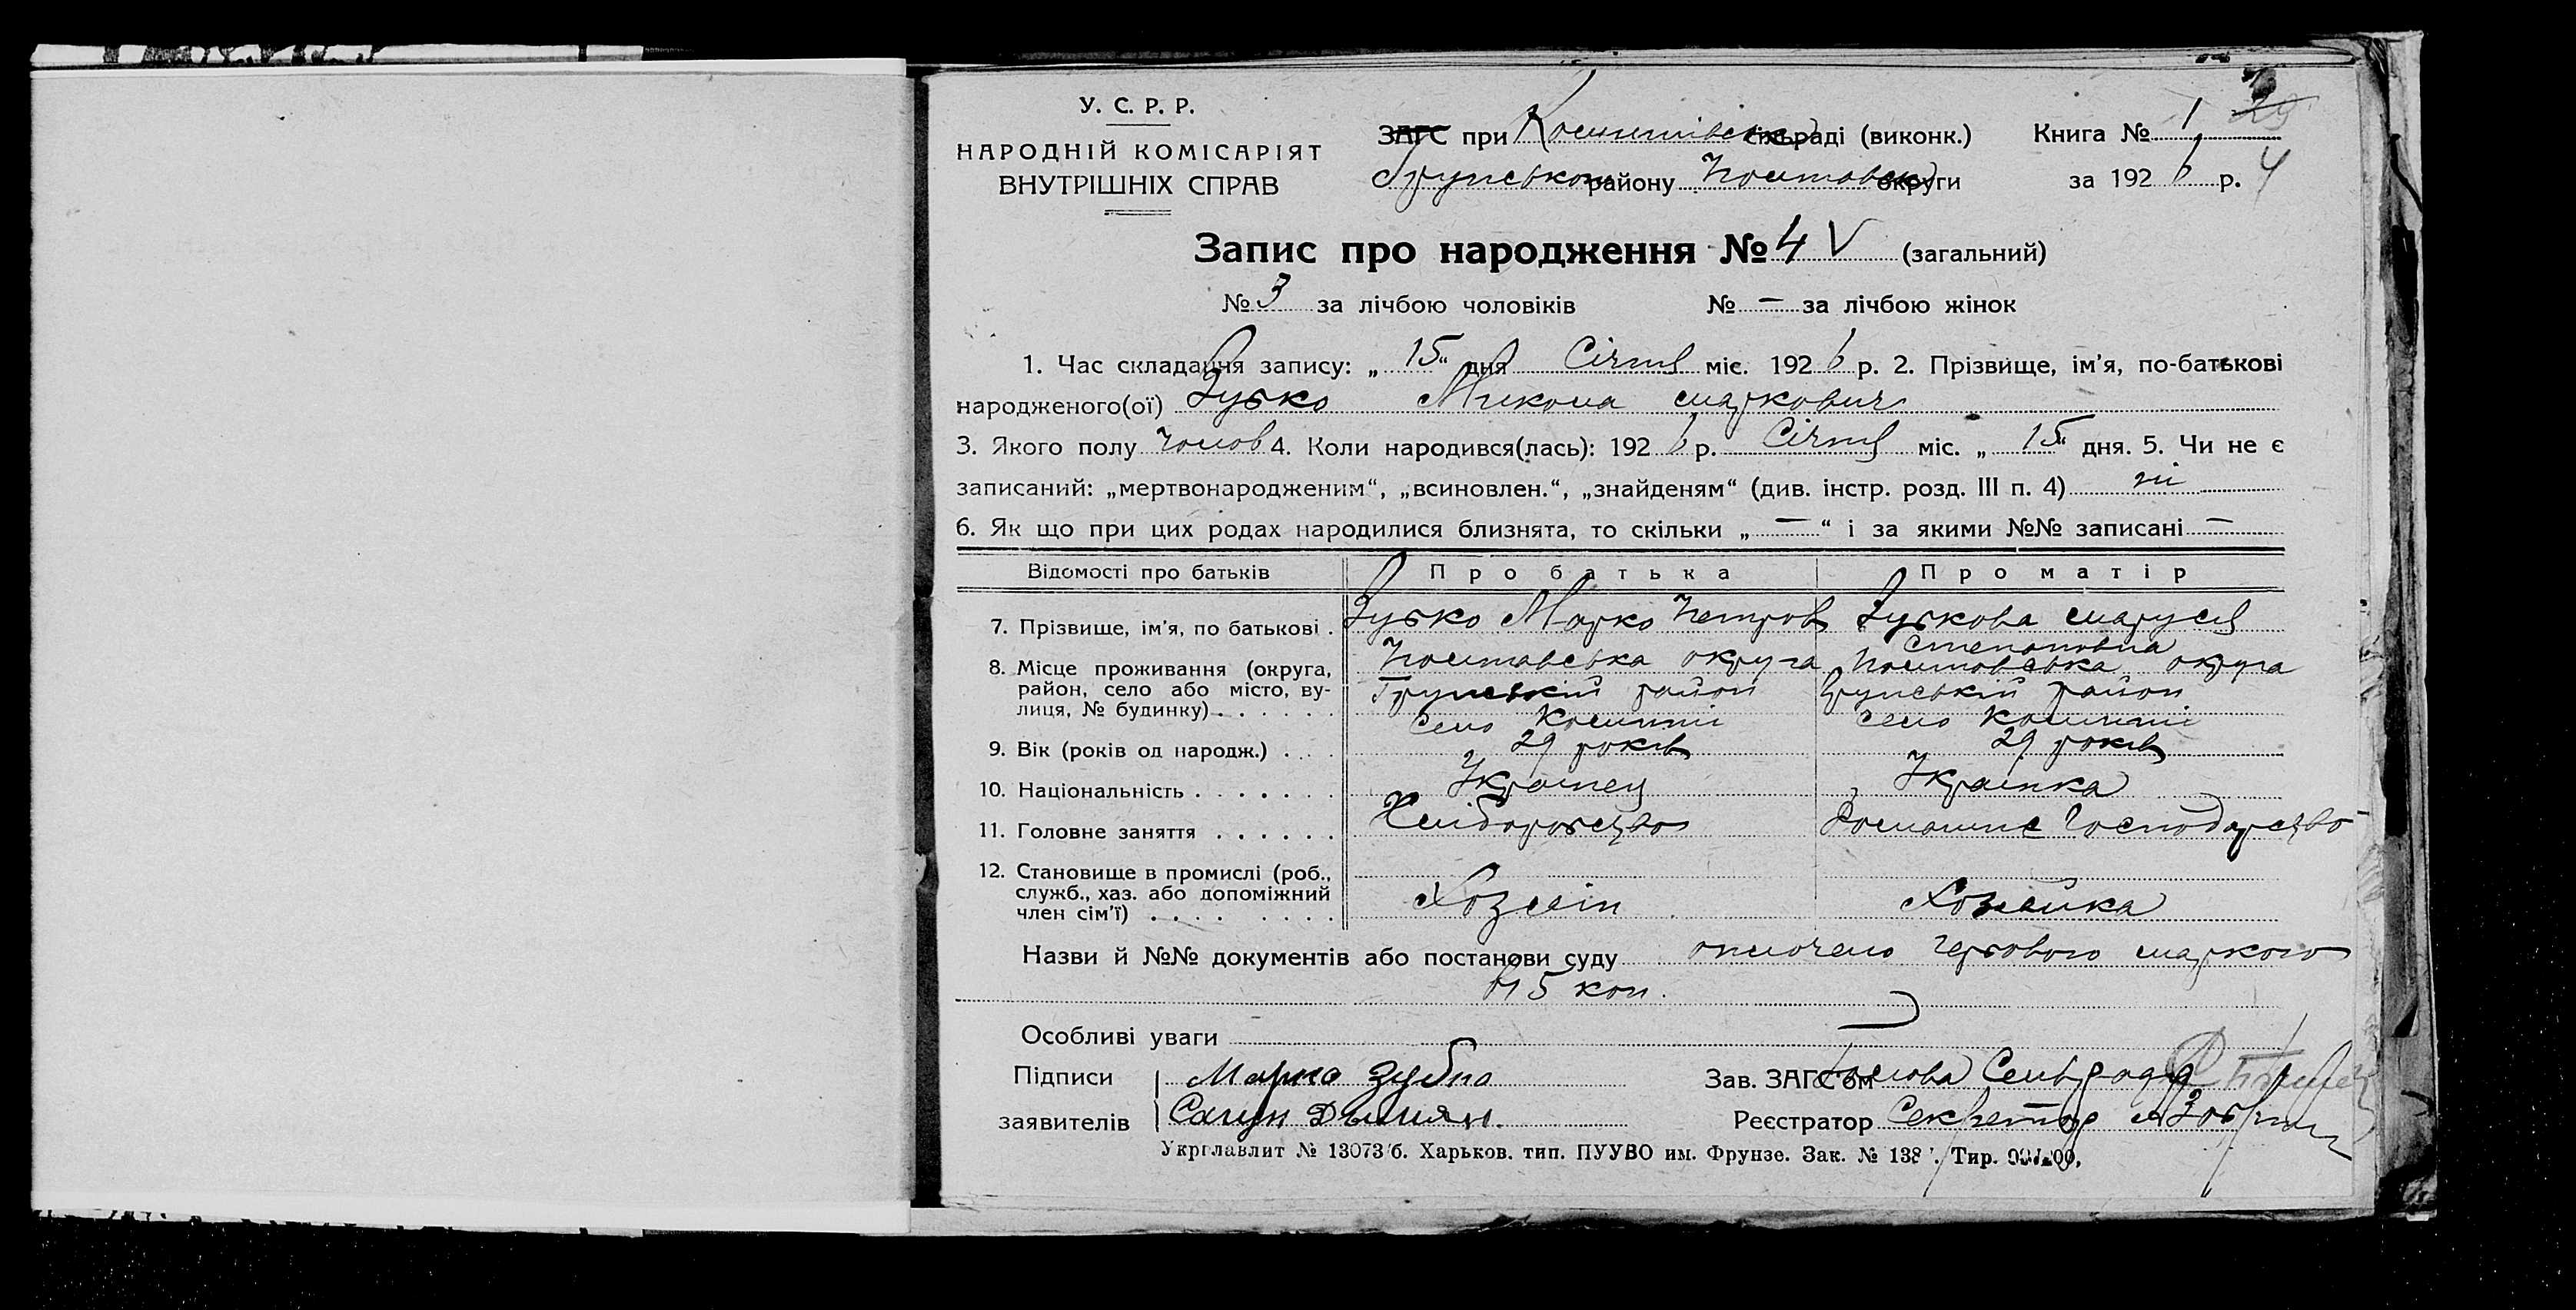 У. С. Р. Р.
НАРОДНІЙ КОМІСАРІЯТ
ВНУТРІШНІХ СПРАВ
ЗАГС при сільраді (виконк.) Книга № 1
району Полтавськ округи за 1926 р. 4
Запис про народження № 4 V (загальний)
№ 3 за лічбою чоловіків № — за лічбою жінок
1. Час складання запису: „ 15 “ дня Січня міс. 1926 р. 2. Прізвище, ім’я, по-батькові
народженого(ої) Зубко Микола Маркович
3. Якого полу чолов 4. Коли народився(лась): 1926 р. Січня міс. „ 15 “ дня. 5. Чи не є
записаний: „мертвонародженим“, „всиновлен.“, „знайденям“ (див. інстр. розд. III п. 4) ні
6. Як що при цих родах народилися близнята, то скільки „ — “ і за якими №№ записані —
Відомості про батьків Про батька Про матір
7. Прізвище, ім’я, по батькові . Зубко Марко Петров Зубкова Маруся
Степановна
8. Місце проживання (округа, Полтавська округа Полтавська округа
район, село або місто, ву- Грунський район Грунський район
лиця, № будинку) . . . . . . село село
9. Вік (років од народж.) . . . 29 років 29 років
10. Національність . . . . . . . Украінец Украінка
11. Головне заняття . . . . . . Хліборобство Домашнє Господарство
12. Становище в промислі (роб.,
служб., хаз. або допоміжний Хозяїн Хозяйка
член сім’ї) . . . . . . . .
Назви й №№ документів або постанови суду оплочено гербового маркою
15 коп.
Особливі уваги
Підписи Марко Зубко Зав. ЗАГС’ом Голова Сельради
заявителів Реєстратор Секретар
Укрглавлит № 13073/б. Харьков. тип. ПУУВО им. Фрунзе. Зак. № 138 Тир.